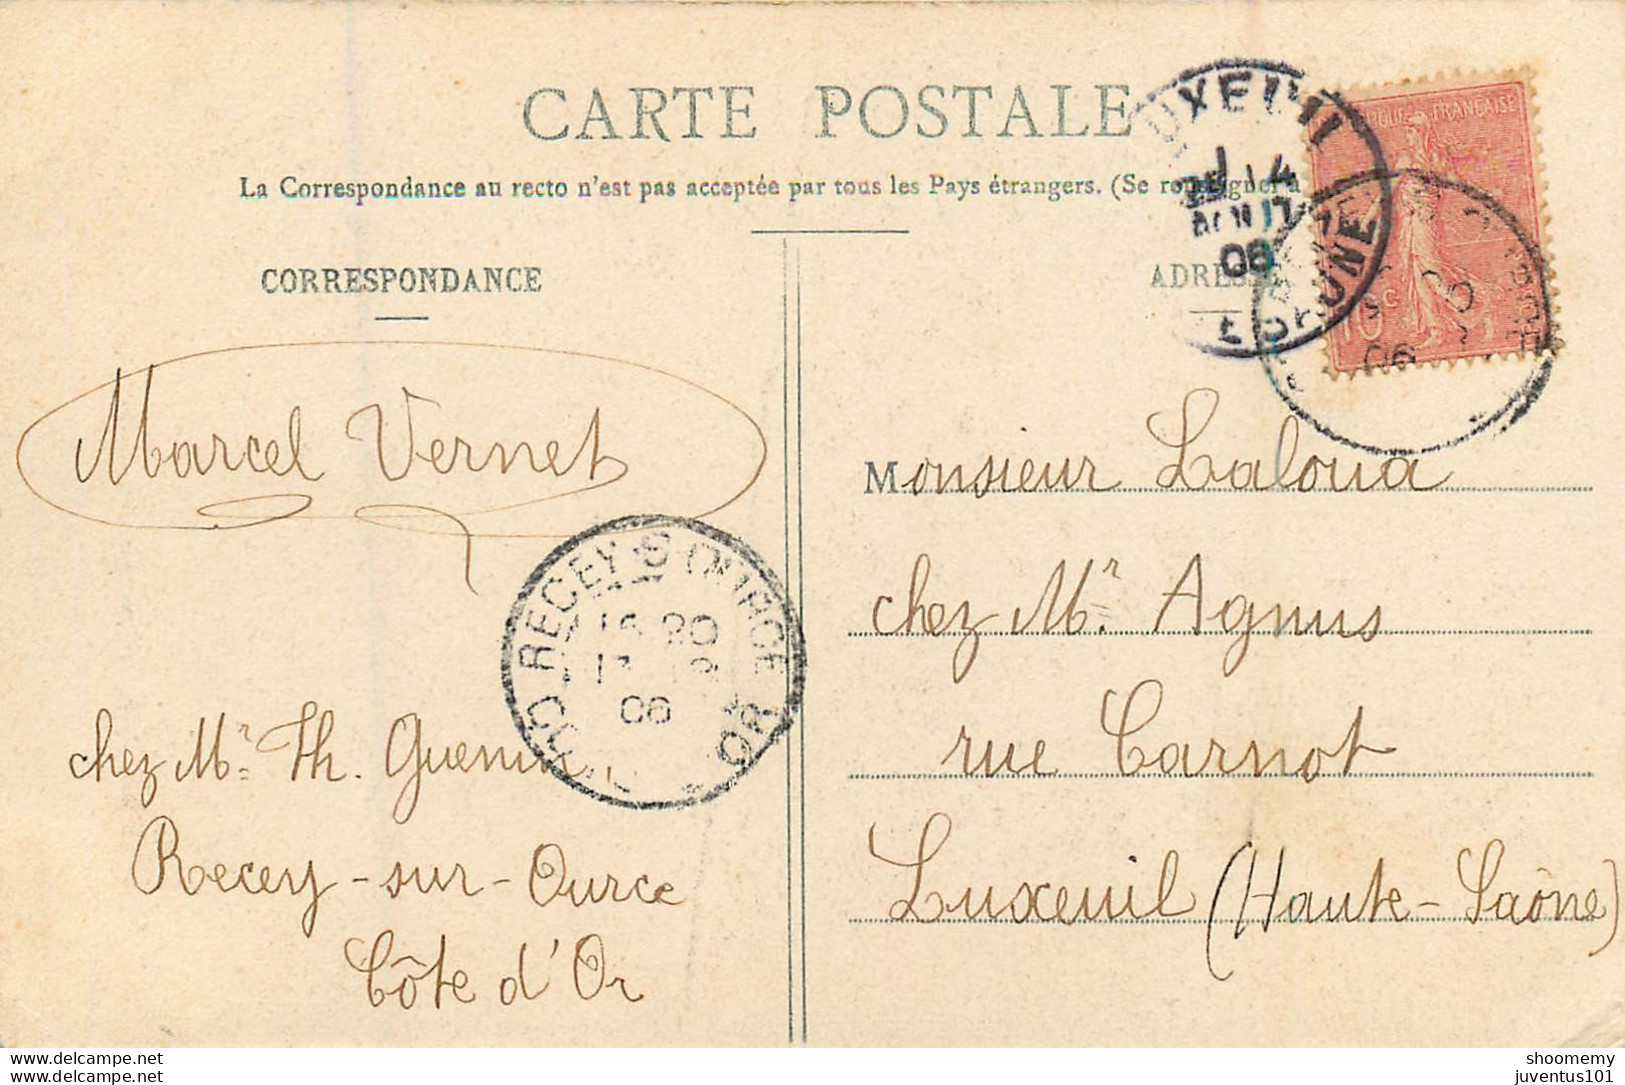 CARTE POSTALE
La Correspondance au recto n'est pas acceptée par tous les Pays étrangers. (Se renseigner à
CORRESPONDANCE
ADRESSE
FRANÇAISE
10 c
06
Marcel Vernet
RECEY-S-OURCE
16 20
06
COTE D'OR
chez Mr. Th. Guenin
Recey-sur-Ource
Côte d'Or
Monsieur Laloua
chez Mr. Agnus
rue Carnot
Luxeuil (Haute-Saône)
delcampe.net
delcampe.net
shoomemy
juventus101